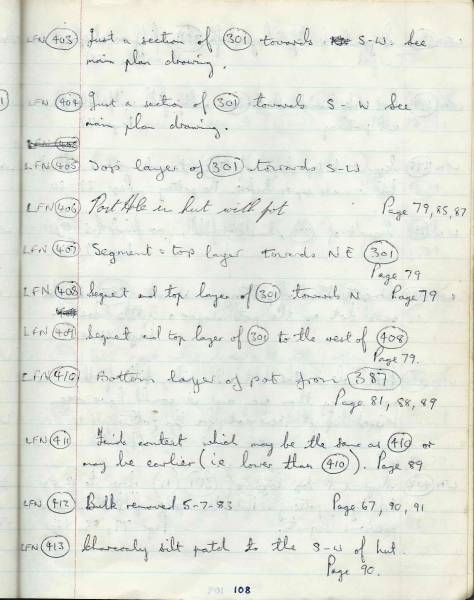 LFN 403 Just a section of 301 towards S-W. See
main plan drawing.
LFN 404 Just a section of 301 towards S-W See
main plan drawing.
LFN 405 Top layer of 301 towards S-W
LFN 406 Post Hole in hut with pot Page 79, 85, 87
LFN 407 Segment = top layer towards NE 301
Page 79
LFN 408 Segment and top layer of 301 towards N Page 79
LFN 409 Segment and top layer of 301 to the west of 408
Page 79.
LFN 410 Bottom layer of pot from 387
Page 81, 88, 89
LFN 411 Finds context which may be the same as 410 or
may be earlier (i.e lower than 410). Page 89
LFN 412 Bulk removed 5-7-83 Page 67, 90, 91
LFN 413 Charcoaly silt patch to the S-W of hut.
Page 90.
108